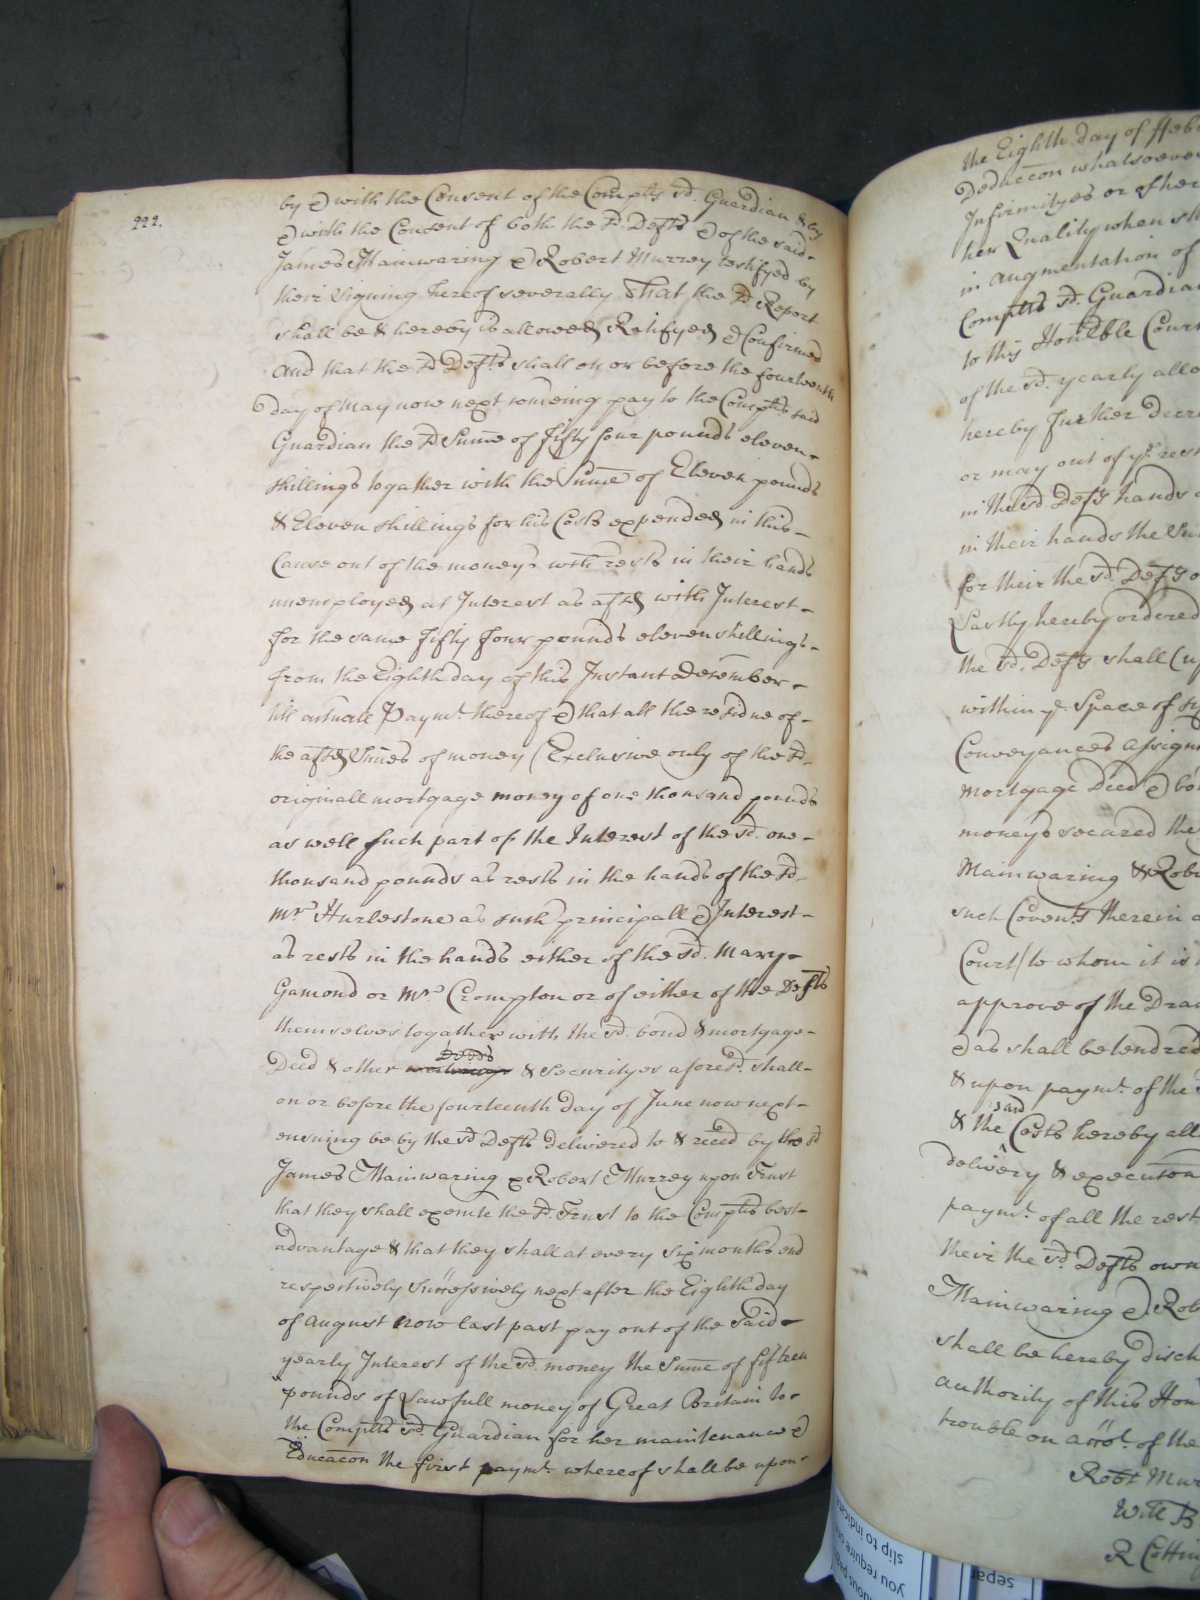 222.
by & with the Consent of the Complts sd. Guardian & by
& with the Consent of both the sd. Defts & of the said
James Mainwaring & Robert Murrey testifyed by
their Signing hereof severally That the sd Report
shall be & hereby is allowed Ratifyed & Confirmed
And that the sd Defts shall on or before the fourteenth
day of May now next comeing pay to the Complts said
Guardian the sd Sume of Fifty four pounds eleven
shillings togather with the Sume of Eleven pounds
& Eleven shillings for his Costs expended in this
Cause out of the moneys wch rests in their hands
unemployed at Interest as aftd with Interest
for the same Fifty four pounds eleven shillings
from the Eighth day of this Instant December
till actuall Paymt. thereof & that all the residue of
the aftd Sumes of money (Exclusive only of the sd
originall mortgage money of one thousand pounds
as well such part of the Interest of the sd. one
thousand pounds as rests in the hands of the sd
Mr. Hurlestone as such principall & Interest
as rests in the hands either of the sd. Mary
Gamond or Mr. Crompton or of either of the Defts
themselves togather with the sd. bond & mortgage
Deeds
Deed & other & Securityes aforesd. shall
on or before the fourteenth day of June now next
ensuing be by the sd Defts delivered to & reced by the sd
James Mainwaring & Robert Murrey upon Trust
that they shall execute the sd. Trust to the Complts best
advantage & that they shall at every six months end
respectively Successively next after the Eighth day
of August now last past pay out of the Said
yearly Interest of the sd. money the Sume of fifteen
pounds of Lawfull money of Great Britain to
the Complts sd. Guardian for her maintenance &
Educacon the first paymt. whereof shall be upon
the Eighth day of
Deduccon whatsoever
Infirmityes or other
her Quality when
in augmentation of
Complts sd. Guardian
to this Honble Court
of the sd. yearly
hereby further
or may out of ye
in the sd. Defts hands
in their hands the
for their the sd. Defts
Lastly hereby ordered
the sd. Defts shall
within ye Space of
Conveyances
Mortgage Deed &
moneys secured the
Mainwaring &
such Covents therein
Court (to whom it is
approve of the
& as shall be tendred
& upon paymt. of the
said
& the Costs hereby
delivery & execution
paymt. of all the
their the sd. Defts own
Mainwaring &
shall be hereby
authority of this
trouble on accot. of the
Robt
Will
R
you require
slip to indicate